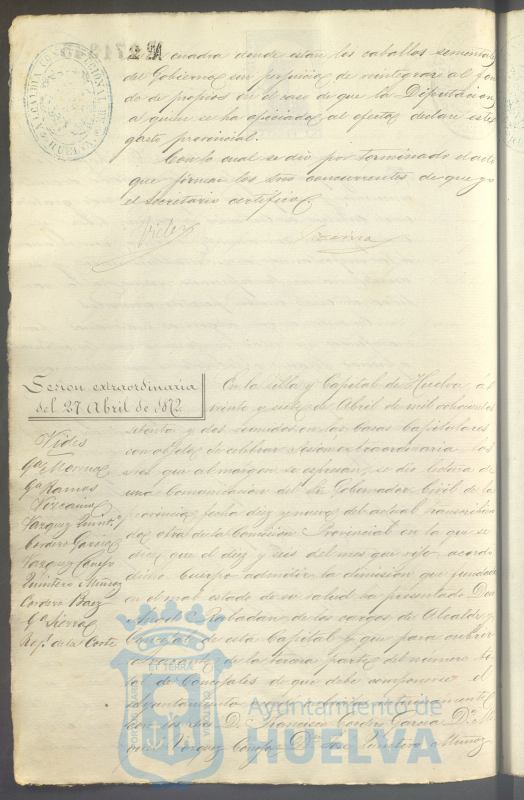 cuadra donde están los caballos sementales
del Gobierno sin perjuicio de reintegrar al fon
do de propios en el caso de que la Diputacion
a quien se ha oficiado al efecto declare este
gasto provincial.
Con lo cual se dió por terminado el acto
que firman los Sres concurrentes de que yo
el Secretario certifico.
Vides
Sesion extraordinaria
del 27 Abril de 1872.
Vides
Ga. Morena
Ga. Ramos
Vizcaino
Vazquez
Cordero Garcia
Vazquez
Quintero Muñoz
Cordero Baez
Ga. Sierra
de la Corte
En la villa y Capital de Huelva á
veinte y siete de Abril de mil ochocientos
setenta y dos reunidos en las Casas Capitulares
con objeto de celebrar sesion extraordinaria los
Sres que al margen se espresan, se dió lectura de
una Comunicacion del Sr. Gobernador Civil de la
provincia fecha diez y nueve del actual transcribien
do otra de la Comision Provincial en la que se
dice que el diez y seis del mes que rije acordó
dicho Cuerpo admitir la dimision que fundada
en el mal estado de su salud ha presentado Don
Rabadan de los cargos de Alcalde y
Concejal de esta Capital y que para cubrir
de la tercera parte del numero to
tal de Concejales de que debe componerse el
Ayuntamiento
D. Francisco Cordero Garcia Dn.
Vazquez Dn. José Quintero Muñoz
Ayuntamiento de
HUELVA